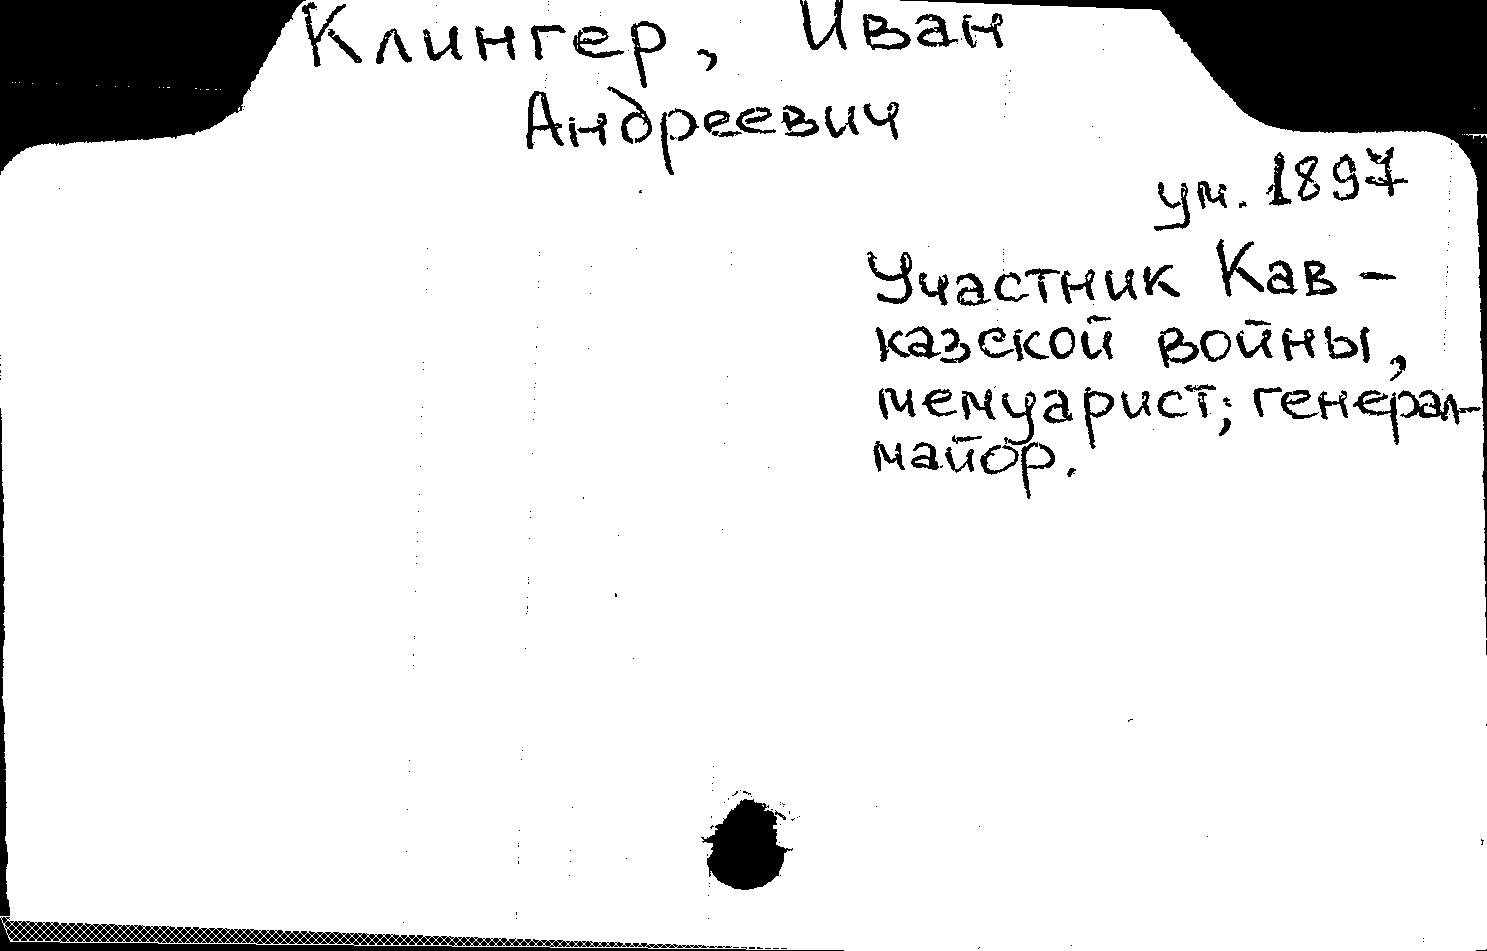 Клингер, Иван
Андреевич
ум. 1897
Участник Кав-
казской войны,
мемуарист; генерал-
майор.